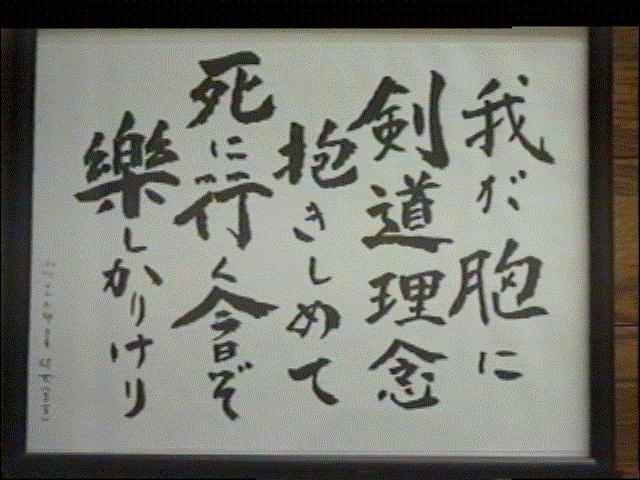 我が胸に
剣道理念
抱きしめて
死に行く今日ぞ
樂しかりけり